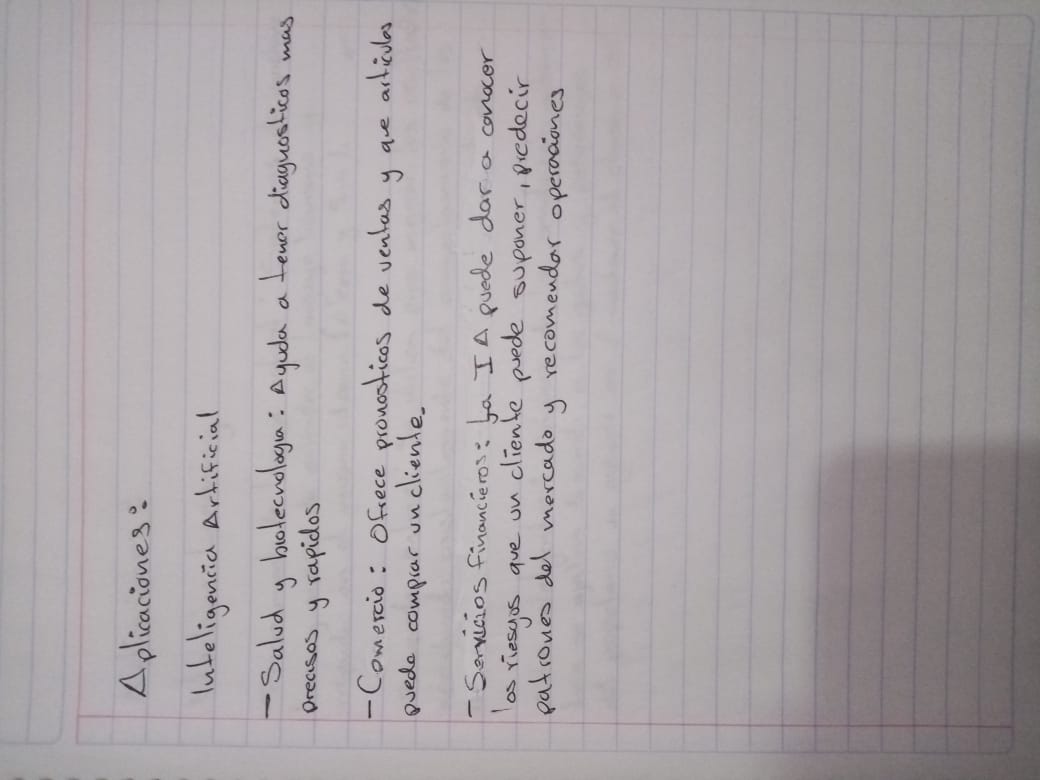 Aplicaciones:
Inteligencia Artificial
- Salud y biotecnologia: Ayuda a tener diagnosticos mas
precisos y rapidos
- Comercio: Ofrece pronosticos de ventas y que articulos
puede comprar un cliente.
- Servicios financieros: La IA puede dar a conocer
los riesgos que un cliente puede suponer, predecir
patrones del mercado y recomendar operaciones